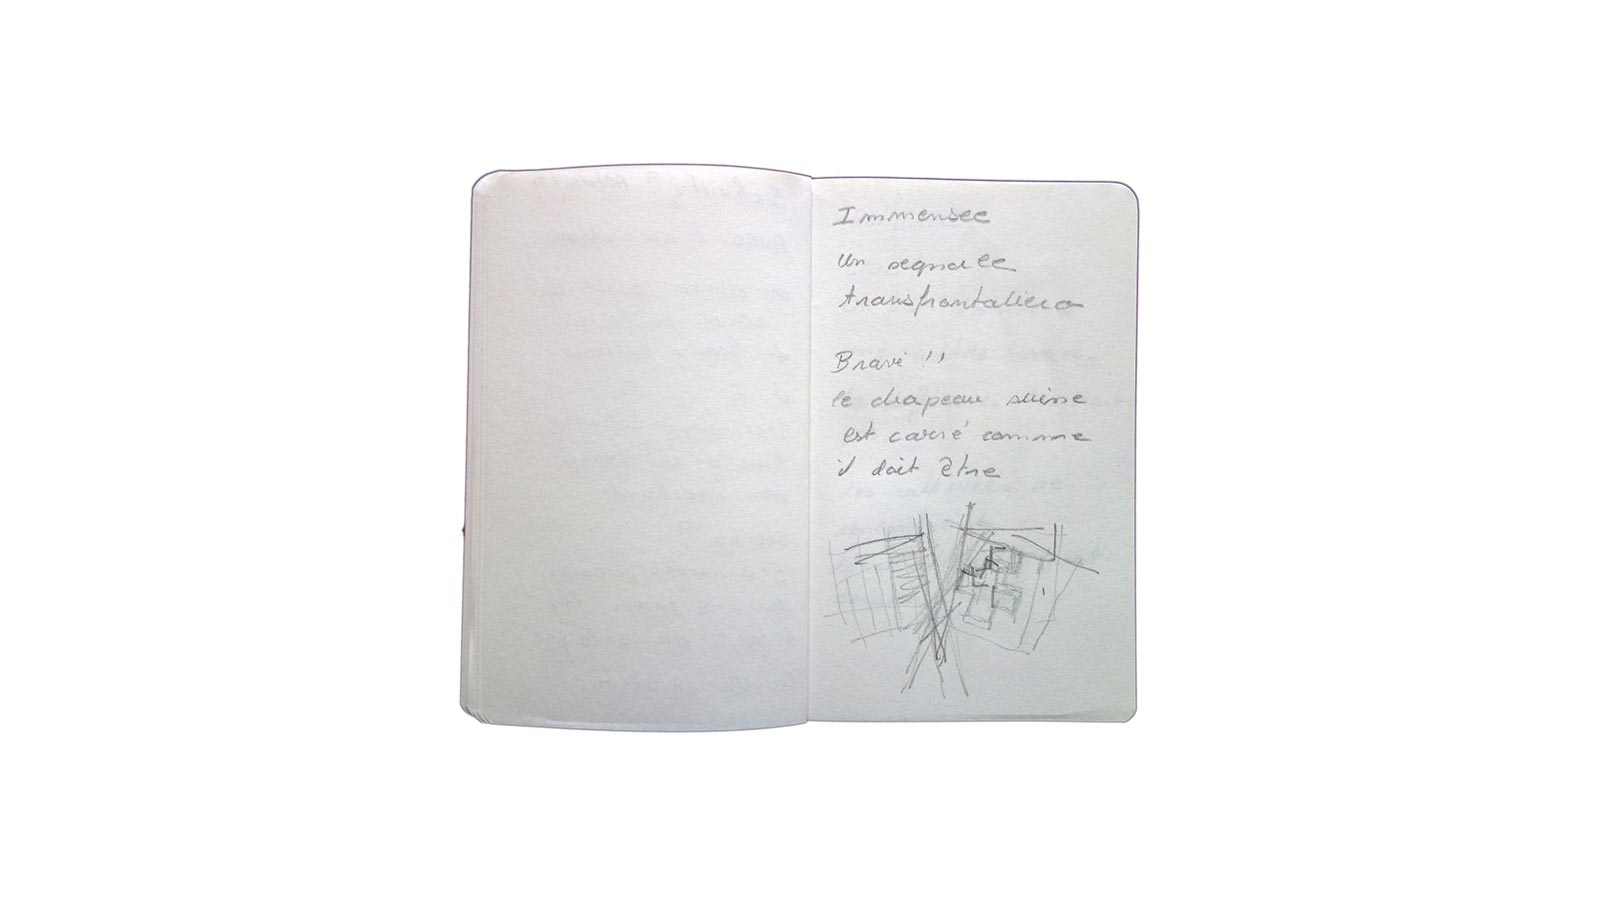 Immensee
un segnale
transfrontaliero
Bravi !!
le chapeau suisse
est carré comme
il doit être